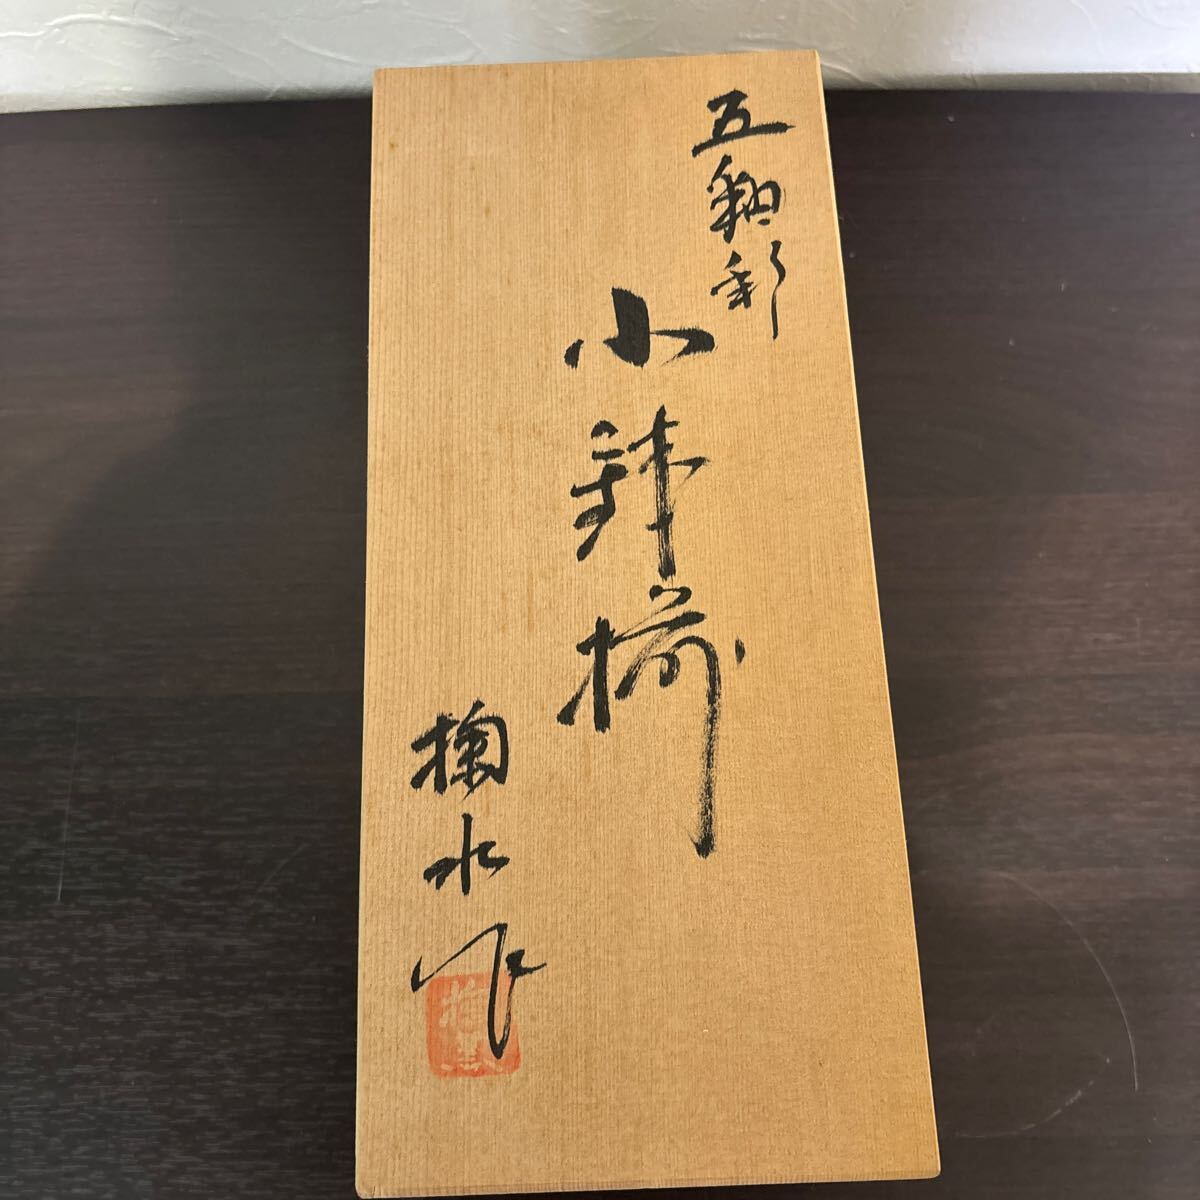 五釉彩
小鉢揃
掬水作